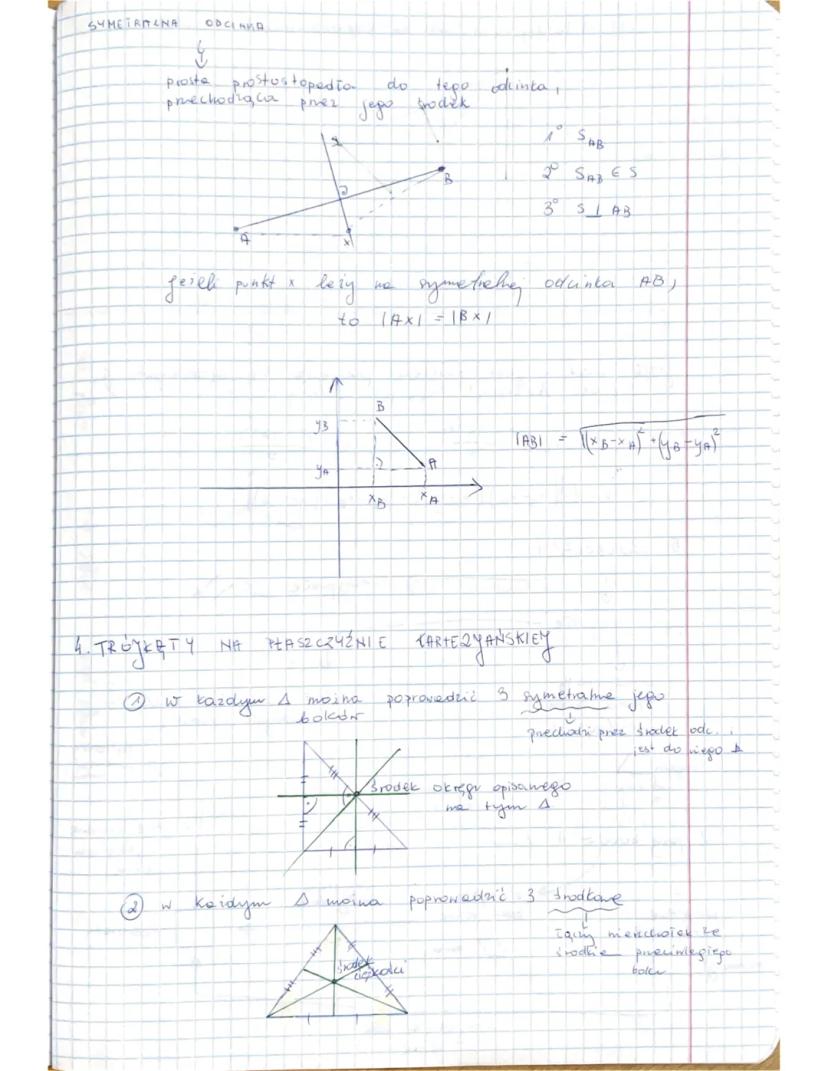 SYMETRALNA ODCINKA
prosta prostopadła do tego odcinka,
przechodząca przez jego środek
1° S_AB
2° S_AB ∈ S
3° S ⊥ AB
B
A
x
Jeżeli punkt x leży na symetralnej odcinka AB,
to |AX| = |BX|
B
yB
|AB| = √((xB-xA)²+(yB-yA)²)
yA
A
xB
xA
4. TRÓJKĘTY NA PŁASZCZYŹNIE KARTEZYAŃSKIEY
① w każdym Δ można poprowadzić 3 symetralne jego
boków
przechodzi przez środek odc.
jest do niego ⊥
środek okręgu opisanego
na tym Δ
② w każdym Δ można poprowadzić 3 środkowe
łączy wierzchołek ze
środkiem przeciwległego
boku
środek
ciężkości